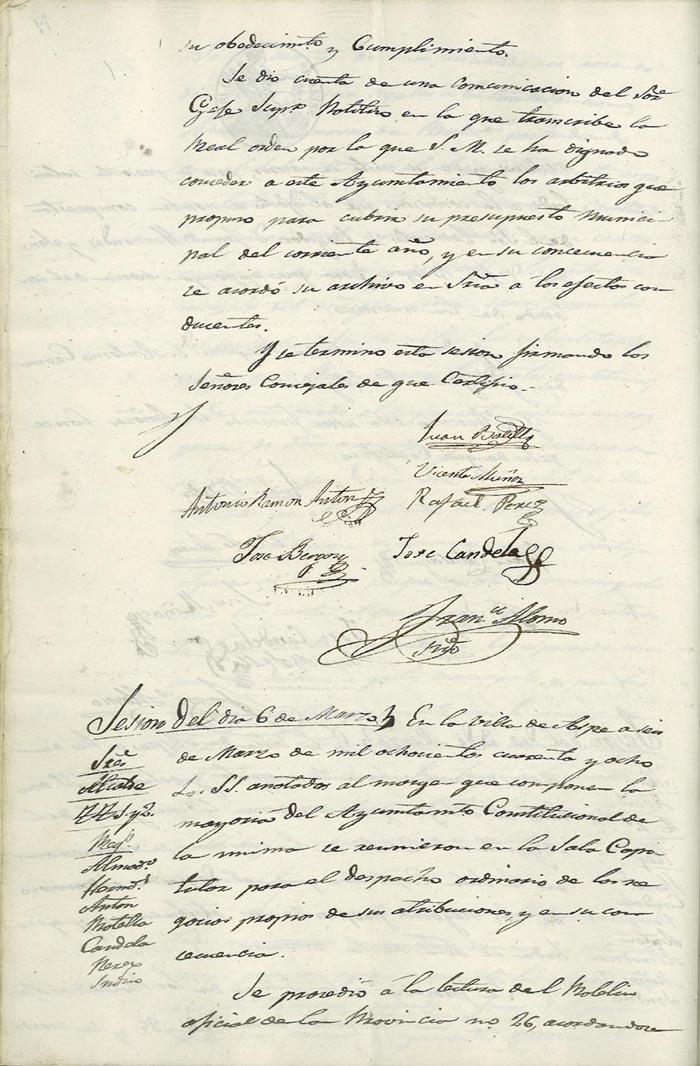 su obedecimto y Cumplimiento.
Se dio cuenta de una comunicacion del Sor
Gefe Supr Politico en la que transcribe la
Real orden por la que S. M. se ha dignado
conceder a este Ayuntamiento los arbitrios que
propuso para cubrir su presupuesto munici
pal del corriente año, y en su concecuencia
se acordó su archivo en Sria á los efectos con
ducentes.
Y se termino esta sesion firmando los
Señores Concejales de que Certifico.
Juan
Vicente Muñoz
Antonio Ramon Anton
Rafael Perez
Jose
Jose Candela
Franco Alonso
Srio
Sesion del dia 6 de Marzo
En la Villa de Aspe a seis
de Marzo de mil ochocientos cuarenta y ocho
Los SS. anotados al margen que componen la
mayoria del Ayuntamto Constitucional de
la misma se reunieron en la Sala Capi
tular para el despacho ordinario de los ne
gocios propios de sus atribuciones, y en su con
cecuencia.
Sres
Alcalde
1º y 2º
Almodr
Hernd
Anton
Botella
Candela
Perez
Sindico
Se procedió á la lectura del Boletin
oficial de la Provincia no 26, acordandose